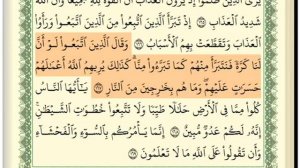 يَرَى ٱلَّذِينَ ظَلَمُوٓا۟ إِذْ يَرَوْنَ ٱلْعَذَابَ أَنَّ ٱلْقُوَّةَ لِلَّهِ جَمِيعًا وَأَنَّ ٱللَّهَ
شَدِيدُ ٱلْعَذَابِ ١٦٥ إِذْ تَبَرَّأَ ٱلَّذِينَ ٱتُّبِعُوا۟ مِنَ ٱلَّذِينَ ٱتَّبَعُوا۟ وَرَأَوُا۟
ٱلْعَذَابَ وَتَقَطَّعَتْ بِهِمُ ٱلْأَسْبَابُ ١٦٦ وَقَالَ ٱلَّذِينَ ٱتَّبَعُوا۟ لَوْ أَنَّ
لَنَا كَرَّةً فَنَتَبَرَّأَ مِنْهُمْ كَمَا تَبَرَّءُوا۟ مِنَّا كَذَٰلِكَ يُرِيهِمُ ٱللَّهُ أَعْمَـٰلَهُمْ
حَسَرَٰتٍ عَلَيْهِمْ وَمَا هُم بِخَـٰرِجِينَ مِنَ ٱلنَّارِ ١٦٧ يَـٰٓأَيُّهَا ٱلنَّاسُ
كُلُوا۟ مِمَّا فِى ٱلْأَرْضِ حَلَـٰلًا طَيِّبًا وَلَا تَتَّبِعُوا۟ خُطُوَٰتِ ٱلشَّيْطَـٰنِ
إِنَّهُۥ لَكُمْ عَدُوٌّ مُّبِينٌ ١٦٨ إِنَّمَا يَأْمُرُكُم بِٱلسُّوٓءِ وَٱلْفَحْشَآءِ
وَأَن تَقُولُوا۟ عَلَى ٱللَّهِ مَا لَا تَعْلَمُونَ ١٦٩